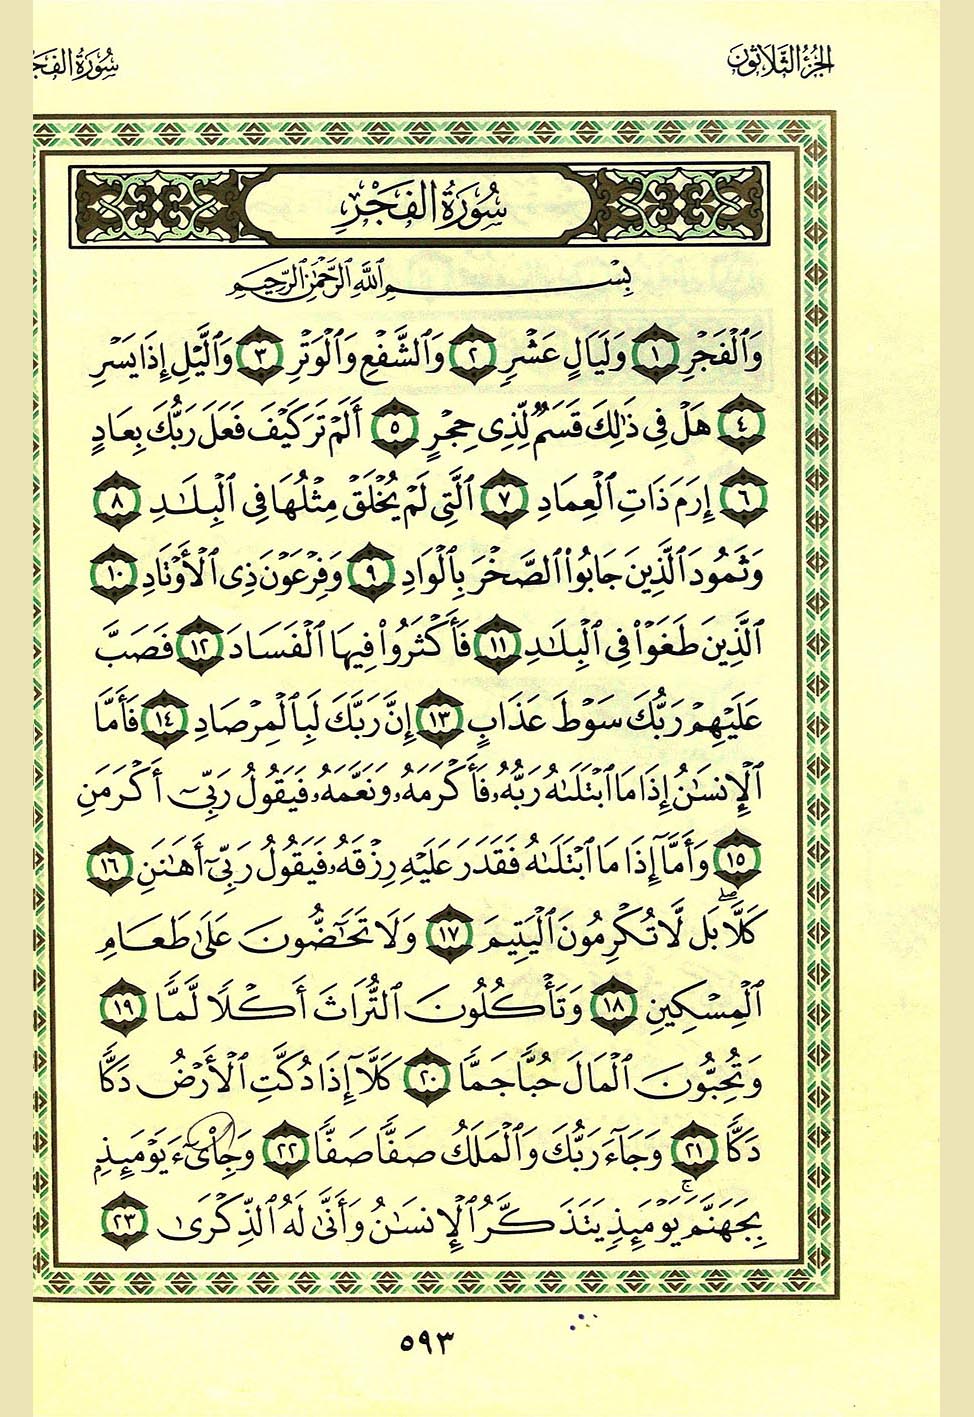 الجزء الثلاثون
سورة الفجر
سُورَةُ الفَجْرِ
بِسْمِ ٱللَّهِ ٱلرَّحْمَٰنِ ٱلرَّحِيمِ
وَٱلْفَجْرِ ١ وَلَيَالٍ عَشْرٍ ٢ وَٱلشَّفْعِ وَٱلْوَتْرِ ٣ وَٱلَّيْلِ إِذَا يَسْرِ
٤ هَلْ فِى ذَٰلِكَ قَسَمٌ لِّذِى حِجْرٍ ٥ أَلَمْ تَرَ كَيْفَ فَعَلَ رَبُّكَ بِعَادٍ
٦ إِرَمَ ذَاتِ ٱلْعِمَادِ ٧ ٱلَّتِى لَمْ يُخْلَقْ مِثْلُهَا فِى ٱلْبِلَـٰدِ ٨
وَثَمُودَ ٱلَّذِينَ جَابُوا۟ ٱلصَّخْرَ بِٱلْوَادِ ٩ وَفِرْعَوْنَ ذِى ٱلْأَوْتَادِ ١٠
ٱلَّذِينَ طَغَوْا۟ فِى ٱلْبِلَـٰدِ ١١ فَأَكْثَرُوا۟ فِيهَا ٱلْفَسَادَ ١٢ فَصَبَّ
عَلَيْهِمْ رَبُّكَ سَوْطَ عَذَابٍ ١٣ إِنَّ رَبَّكَ لَبِٱلْمِرْصَادِ ١٤ فَأَمَّا
ٱلْإِنسَـٰنُ إِذَا مَا ٱبْتَلَىٰهُ رَبُّهُۥ فَأَكْرَمَهُۥ وَنَعَّمَهُۥ فَيَقُولُ رَبِّىٓ أَكْرَمَنِ
١٥ وَأَمَّآ إِذَا مَا ٱبْتَلَىٰهُ فَقَدَرَ عَلَيْهِ رِزْقَهُۥ فَيَقُولُ رَبِّىٓ أَهَـٰنَنِ ١٦
كَلَّاۖ بَل لَّا تُكْرِمُونَ ٱلْيَتِيمَ ١٧ وَلَا تَحَـٰٓضُّونَ عَلَىٰ طَعَامِ
ٱلْمِسْكِينِ ١٨ وَتَأْكُلُونَ ٱلتُّرَاثَ أَكْلًا لَّمًّا ١٩
وَتُحِبُّونَ ٱلْمَالَ حُبًّا جَمًّا ٢٠ كَلَّآ إِذَا دُكَّتِ ٱلْأَرْضُ دَكًّا
دَكًّا ٢١ وَجَآءَ رَبُّكَ وَٱلْمَلَكُ صَفًّا صَفًّا ٢٢ وَجِا۟ىٓءَ يَوْمَئِذٍۭ
بِجَهَنَّمَۚ يَوْمَئِذٍ يَتَذَكَّرُ ٱلْإِنسَـٰنُ وَأَنَّىٰ لَهُ ٱلذِّكْرَىٰ ٢٣
٥٩٣